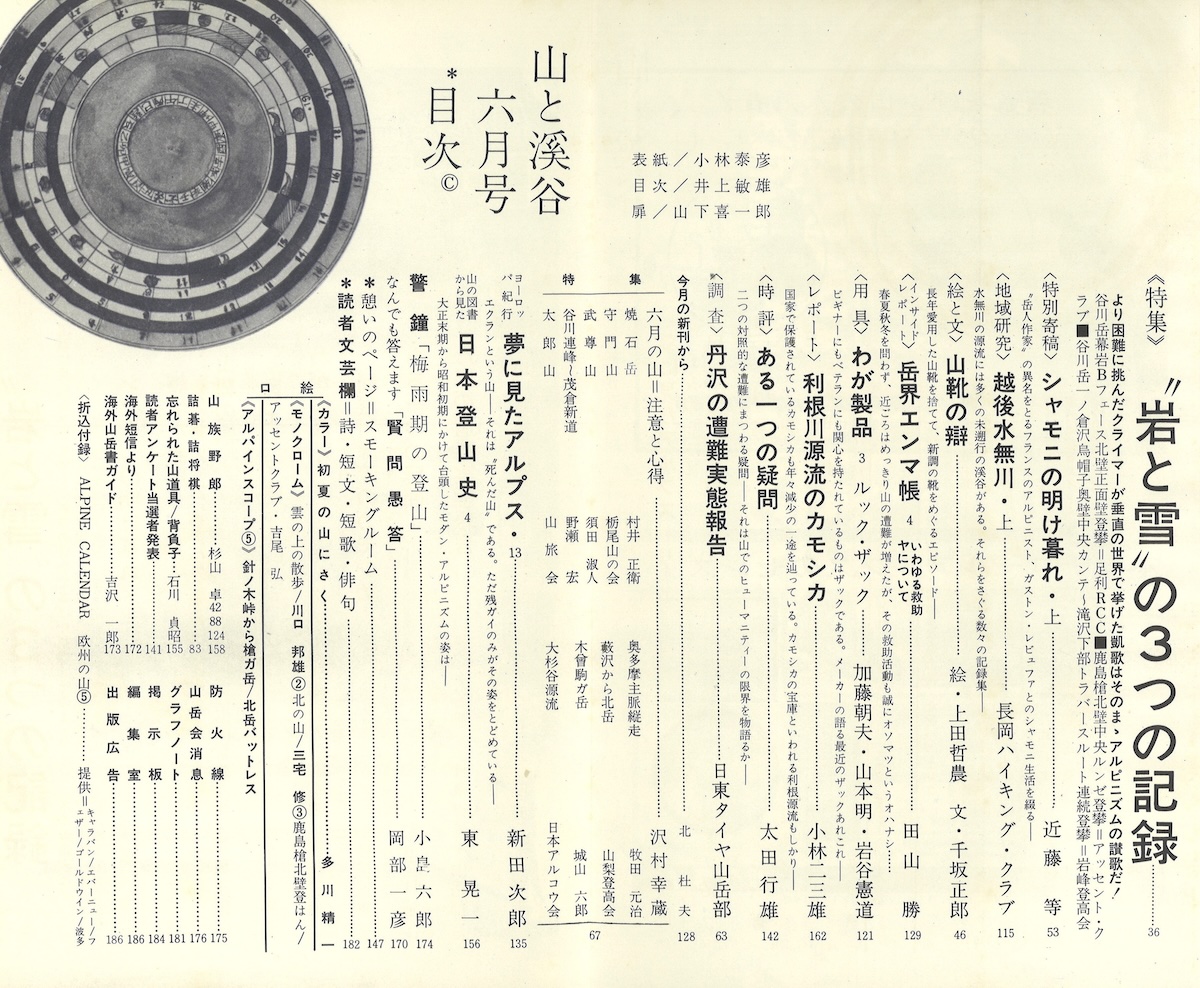 山と溪谷
六月号
*目次©
表紙/小林泰彦
目次/井上敏雄
扉/山下喜一郎
《特集》 “岩と雪”の3つの記録 36
より困難に挑んだクライマーが垂直の世界で挙げた凱歌はそのまゝアルピニズムの讃歌だ!
谷川岳幕岩Bフェース北壁正面壁登攀=足利RCC■鹿島槍北壁中央ルンゼ登攀=アッセント・ク
ラブ■谷川岳一ノ倉沢烏帽子奥壁中央カンテ〜滝沢下部トラバースルート連続登攀=岩峰登高会
〈特別寄稿〉 シャモニの明け暮れ・上 近藤等 53
“岳人作家”の異名をとるフランスのアルピニスト、ガストン・レビュファとのシャモニ生活を綴る――
〈地域研究〉 越後水無川・上 長岡ハイキング・クラブ 115
水無川の源流には多くの未遡行の溪谷がある。それらをさぐる数々の記録集――
〈絵と文〉 山靴の辯 絵・上田哲農 文・千坂正郎 46
長年愛用した山靴を捨てて、新調の靴をめぐるエピソード――
〈インサイドレポート〉 岳界エンマ帳 4 いわゆる救助ヤについて 田山勝 129
春夏秋冬を問わず、近ごろはめっきり山の遭難が増えたが、その救助活動も誠にオソマツというオハナシ……
〈用具〉 わが製品 3 ルック・ザック 加藤朝夫・山本明・岩谷憲道 121
ビギナーにもベテランにも関心を持たれているものはザックである。メーカーの語る最近のザックあれこれ――
〈レポート〉 利根川源流のカモシカ 小林二三雄 162
国家で保護されているカモシカも年々減少の一途を辿っている。カモシカの宝庫といわれる利根源流もしかり――
〈時評〉 ある一つの疑問 太田行雄 142
二つの対照的な遭難にまつわる疑問――それは山でのヒューマニティーの限界を物語るか――
〈調査〉 丹沢の遭難実態報告 日東タイヤ山岳部 63
今月の新刊から 北杜夫 128
特集
六月の山=注意と心得 沢村幸蔵
焼石岳 村井正衛
守門山 栃尾山の会
武尊山 須田淑人
谷川連峰〜茂倉新道 野瀬宏
太郎山 山旅会
奥多摩主脈縦走 牧田元治
藪沢から北岳 山梨登高会
木曾駒ガ岳 城山六郎
大杉谷源流 日本アルコウ会
67
ヨーロッパ紀行 夢に見たアルプス・13 新田次郎 135
エクランという山――それは“死んだ山”である。ただ残ガイのみがその姿をとどめている――
山の図書から見た 日本登山史 4 東晃一 156
大正末期から昭和初期にかけて台頭したモダン・アルピニズムの姿は――
警鐘「梅雨期の登山」 小島六郎 174
なんでも答えます「賢問愚答」 岡部一彦 170
*憩いのページ=スモーキングルーム 147
*読者文芸欄=詩・短文・短歌・俳句 182
口絵
《カラー》初夏の山にさく 多川精一
《モノクローム》雲の上の散歩/川口邦雄②北の山/三宅修③鹿島槍北壁登はん/
アッセントクラブ・吉尾弘
《アルパインスコープ⑤》針ノ木峠から槍ガ岳/北岳バットレス
山族野郎 杉山卓 42 88 124 158
詰碁・詰将棋 83
忘れられた山道具/背負子 石川貞昭 155
読者アンケート当選者発表 141
海外短信より 172
海外山岳書ガイド 吉沢一郎 173
防火線 175
山岳会消息 176
グラフノート 181
掲示板 184
編集室 186
出版広告 186
〈折込付録〉 ALPINE CALENDAR 欧州の山⑤ 提供=キャラバン/エバーニュー/フェザー/ゴールドウイン/波多